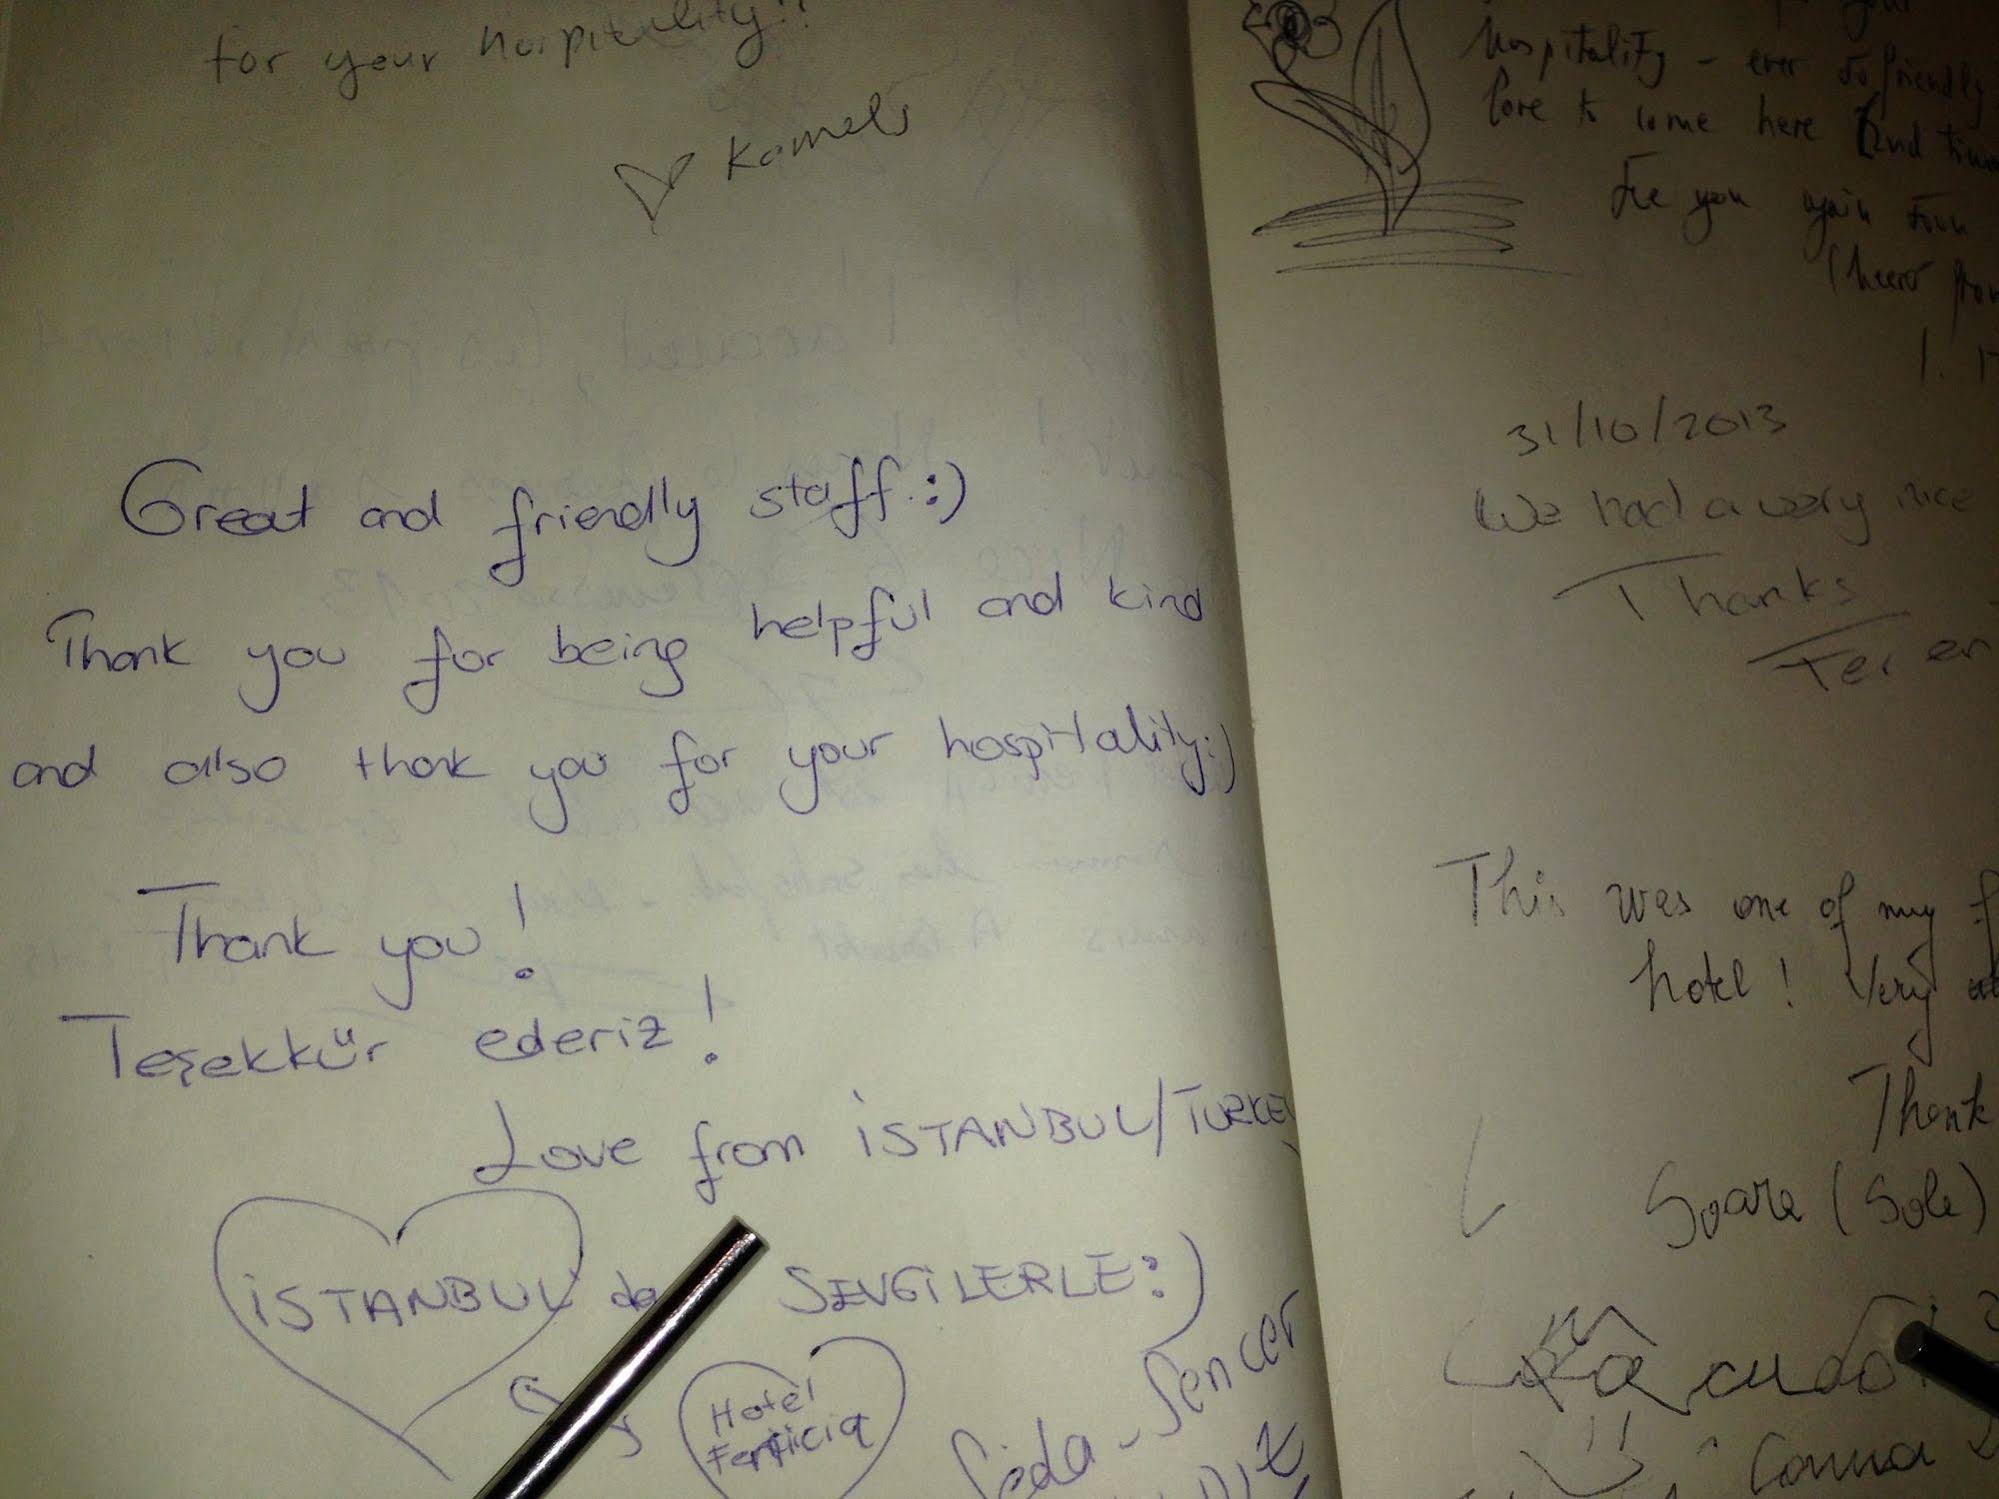 for your hospitality!!
Kamels
Great and friendly staff :)
Thank you for being helpful and kind
and also thank you for your hospitality :)
Thank you!
Teşekkür ederiz!
Love from İSTANBUL/TURKEY
İSTANBUL da SEVGİLERLE :)
Hotel
Seda - Sencer
your
hospitality - ever so friendly
love to come here 2nd time
See you again
31/10/2013
We had a very nice
Thanks
This was one of my
hotel! Very
Thank
Soare (Sole)